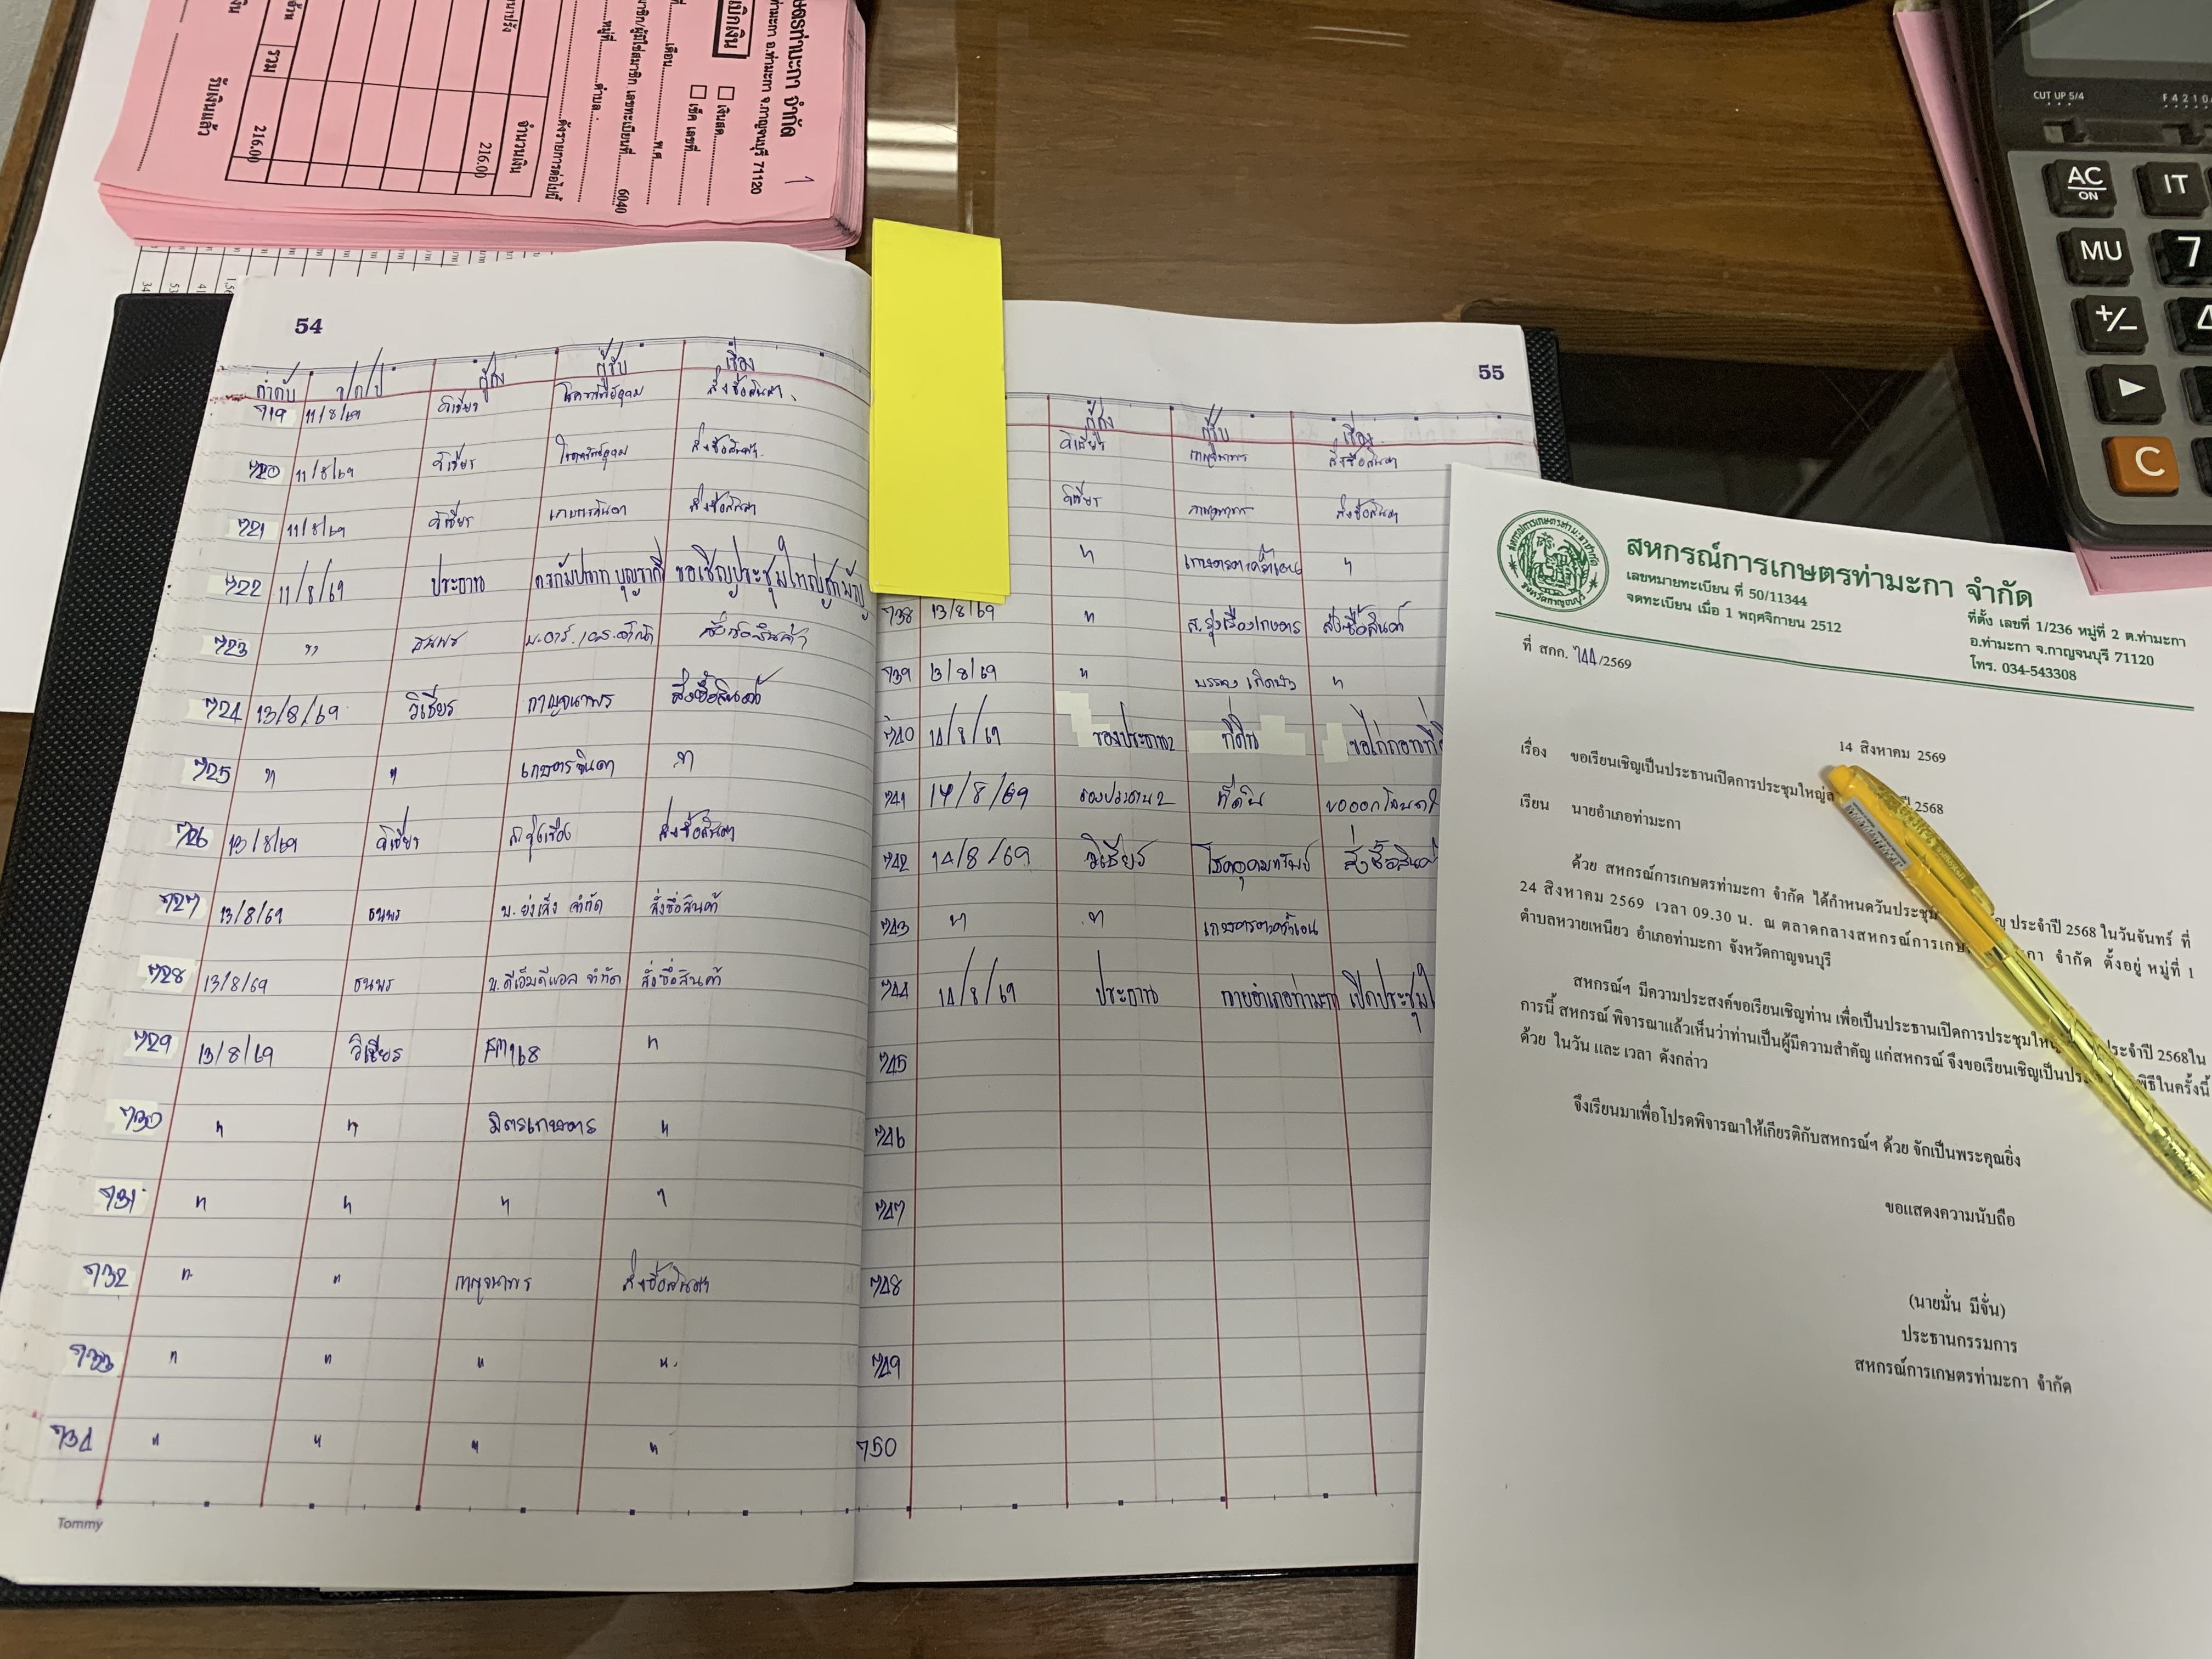 ษตรท่ามะกา จำกัด
ท่ามะกา อ.ท่ามะกา จ.กาญจนบุรี 71120
เบิกเงิน
เงินสด
เช็ค เลขที่
เดือน
พ.ศ.
มาชิก/ผู้มิใช่สมาชิก เลขทะเบียนที่ 6040
หมู่ที่ ตำบล
ดังรายการต่อไปนี้
จำนวนเงิน
216.00
รวม
216.00
รับเงินแล้ว
54
ลำดับ ว/ด/ป ผู้ส่ง ผู้รับ เรื่อง
719 11/8/69 วิเชียร สั่งซื้อสินค้า
720 11/8/69 วิเชียร สั่งซื้อสินค้า
721 11/8/69 วิเชียร เกษตรจินดา สั่งซื้อสินค้า
722 11/8/69 ประธาน ขอเชิญประชุมใหญ่สามัญ
723 " ธนพร สั่งซื้อสินค้า
724 13/8/69 วิเชียร กาญจนาพร สั่งซื้อสินค้า
725 " " เกษตรจินดา "
726 13/8/69 วิเชียร ส.รุ่งเรือง สั่งซื้อสินค้า
727 13/8/69 ธนพร บ.ย่งเส็ง จำกัด สั่งซื้อสินค้า
728 13/8/69 ธนพร บ.ดีเอ็มดีแอล จำกัด สั่งซื้อสินค้า
729 13/8/69 วิเชียร "
730 " " มิตรเกษตร "
731 " " " "
732 " " กาญจนาพร สั่งซื้อสินค้า
733 " " " "
734 " " " "
Tommy
55
ผู้ส่ง ผู้รับ เรื่อง
วิเชียร กาญจนาพร สั่งซื้อสินค้า
วิเชียร กาญจนาพร สั่งซื้อสินค้า
" "
738 13/8/69 " ส.รุ่งเรืองเกษตร สั่งซื้อสินค้า
739 13/8/69 " "
740 14/8/69 รองประธาน2 ที่ดิน ขอไถ่ถอนที่
741 14/8/69 รองประธาน 2 ที่ดิน ขอออกโฉนด
742 14/8/69 วิเชียร โชคอุดมทรัพย์ สั่งซื้อสินค้
743 " "
744 14/8/69 ประธาน นายอำเภอท่ามะกา เปิดประชุมใ
745
746
747
748
749
750
สหกรณ์การเกษตรท่ามะกา จำกัด
เลขหมายทะเบียน ที่ 50/11344
จดทะเบียน เมื่อ 1 พฤศจิกายน 2512
ที่ตั้ง เลขที่ 1/236 หมู่ที่ 2 ต.ท่ามะกา
อ.ท่ามะกา จ.กาญจนบุรี 71120
โทร. 034-543308
ที่ สกก. 744/2569
14 สิงหาคม 2569
เรื่อง ขอเรียนเชิญเป็นประธานเปิดการประชุมใหญ่ส ปี 2568
เรียน นายอำเภอท่ามะกา
ด้วย สหกรณ์การเกษตรท่ามะกา จำกัด ได้กำหนดวันประชุม ญ ประจำปี 2568 ในวันจันทร์ ที่
24 สิงหาคม 2569 เวลา 09.30 น. ณ ตลาดกลางสหกรณ์การเกษ กา จำกัด ตั้งอยู่ หมู่ที่ 1
ตำบลหวายเหนียว อำเภอท่ามะกา จังหวัดกาญจนบุรี
สหกรณ์ฯ มีความประสงค์ขอเรียนเชิญท่าน เพื่อเป็นประธานเปิดการประชุมใหญ่ ประจำปี 2568ใน
การนี้ สหกรณ์ พิจารณาแล้วเห็นว่าท่านเป็นผู้มีความสำคัญ แก่สหกรณ์ จึงขอเรียนเชิญเป็นประ พิธีในครั้งนี้
ด้วย ในวัน และ เวลา ดังกล่าว
จึงเรียนมาเพื่อโปรดพิจารณาให้เกียรติกับสหกรณ์ฯ ด้วย จักเป็นพระคุณยิ่ง
ขอแสดงความนับถือ
(นายมั่น มีจั่น)
ประธานกรรมการ
สหกรณ์การเกษตรท่ามะกา จำกัด
CUT UP 5/4
F 4 2 1 0
AC
ON
IT
MU
7
+/−
C